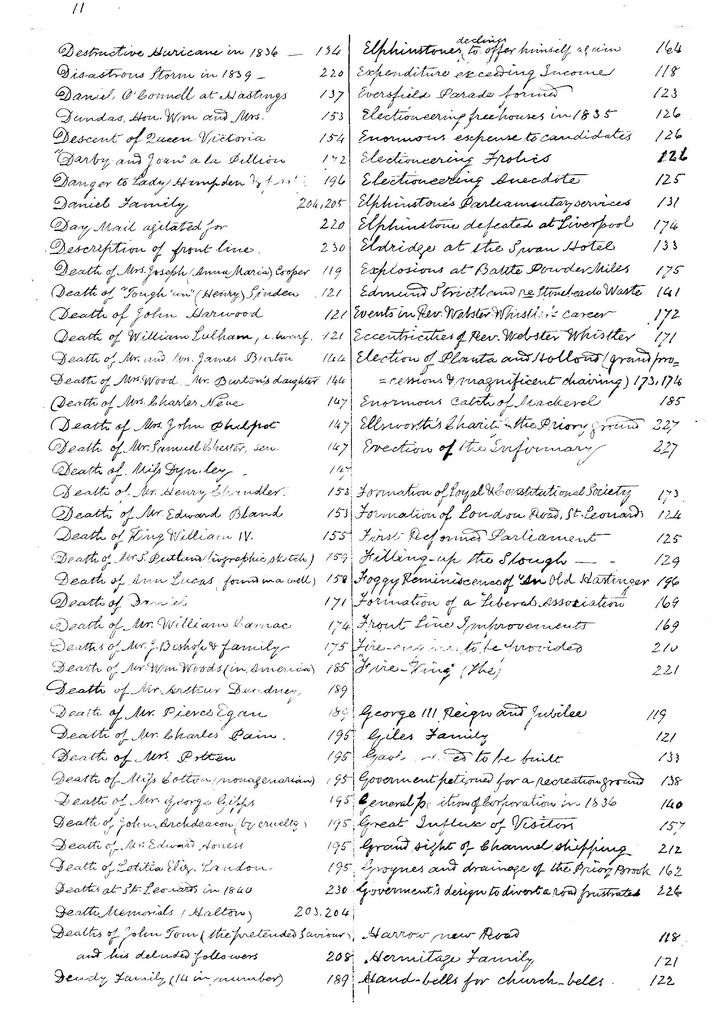 11
Destructive Huricane in 1836 — 134
Disastrous Storm in 1839 — 220
Daniel O'Connell at Hastings 137
Dundas, Hon. Wm and Mrs. 153
Descent of Queen Victoria 154
"Darby and Joan" a la Sillion 172
Danger to Lady Hampden 196
Daniel Family 204, 205
Day Mail agitated for 220
Description of front line. 230
Death of Mrs Joseph (Anna Maria) Cooper 119
Death of "Tough 'un" (Henry) Sinden 121
Death of John Harwood 121
Death of William Lulham, a dwarf. 121
Death of Mr. and Mrs. James Burton 144
Death of Mrs Wood, Mr. Burton's daughter 144
Death of Mrs. Charles Neve 147
Death of Mrs John Philpot 147
Death of Mr. Samuel Chester, sen. 147
Death of Miss Tynley 147
Death of Mr. Henry Chandler. 153
Death of Mr. Edward Bland 153
Death of King William IV. 155
Death of Mr S. Putland (biographic sketch) 159
Death of Ann Lucas, found in a well) 158
Death of Daniel 171
Death of Mr. William Carnac 174
Deaths of Mr. J. Bishop & family 175
Death of Mr. Wm Woods (in America) 185
Death of Mr. Arthur Dendney 189
Death of Mr. Pierce Egan 189
Death of Mr. Charles Pain. 195
Death of Mrs Potten 195
Death of Miss Cotton (nonagenarian) 195
Death of Mr. George Gipps 195
Death of John Archdeacon (by cruelty) 195
Death of Mr. Edward Howess 195
Death of Letitia Eliz. Landon 195
Deaths at St. Leonards in 1840 230
Death Memorials (Halton) 203. 204
Deaths of John Tom (the pretended Saviour)
and his deluded followers 208
Dendy Family (14 in number) 189
Elphinstone declines to offer himself again 164
Expenditure exceeding Income 118
Eversfield Parade formed 123
Electioneering free houses in 1835 126
Enormous expense to candidates 126
Electioneering Frolics 126
Electioneering Anecdote 125
Elphinstone's Parliamentary services 131
Elphinstone defeated at Liverpool 174
Eldridge at the Swan Hotel 133
Explosions at Battle Powder Miles 175
Edmund Strickland re Stonebeade Waste 141
Events in Rev. Webster Whistler's career 172
Eccentricities of Rev. Webster Whistler 171
Election of Planta and Hollond (grand pro=
=cessions & magnificent chairing) 173, 174
Enormous catch of Mackerel 185
Ellsworth's Charity the Priory ground 227
Erection of the Infirmary 227
Formation of Loyal & Constitutional Society 173
Formation of London Road, St. Leonards 124
First Reformed Parliament 125
Filling-up the Slough — - 129
Foggy Reminiscences of "An Old Hastinger 196
Formation of a Liberal Association 169
Front Line Improvements 169
Fire-engines to be provided 210
"Fire-King" (The) 221
George III, Reign and Jubilee 119
Giles Family 121
Gaol to be built 133
Goverment petitioned for a recreation ground 138
General position of Corporation in 1836 140
Great Influx of Visitors 157
Grand sight of Channel shipping 212
Groynes and drainage of the Priory Brook 162
Goverment's design to divert a road frustrated 226
Harrow new Road 118
Hermitage Family 121
Hand-bells for church-bells. 122